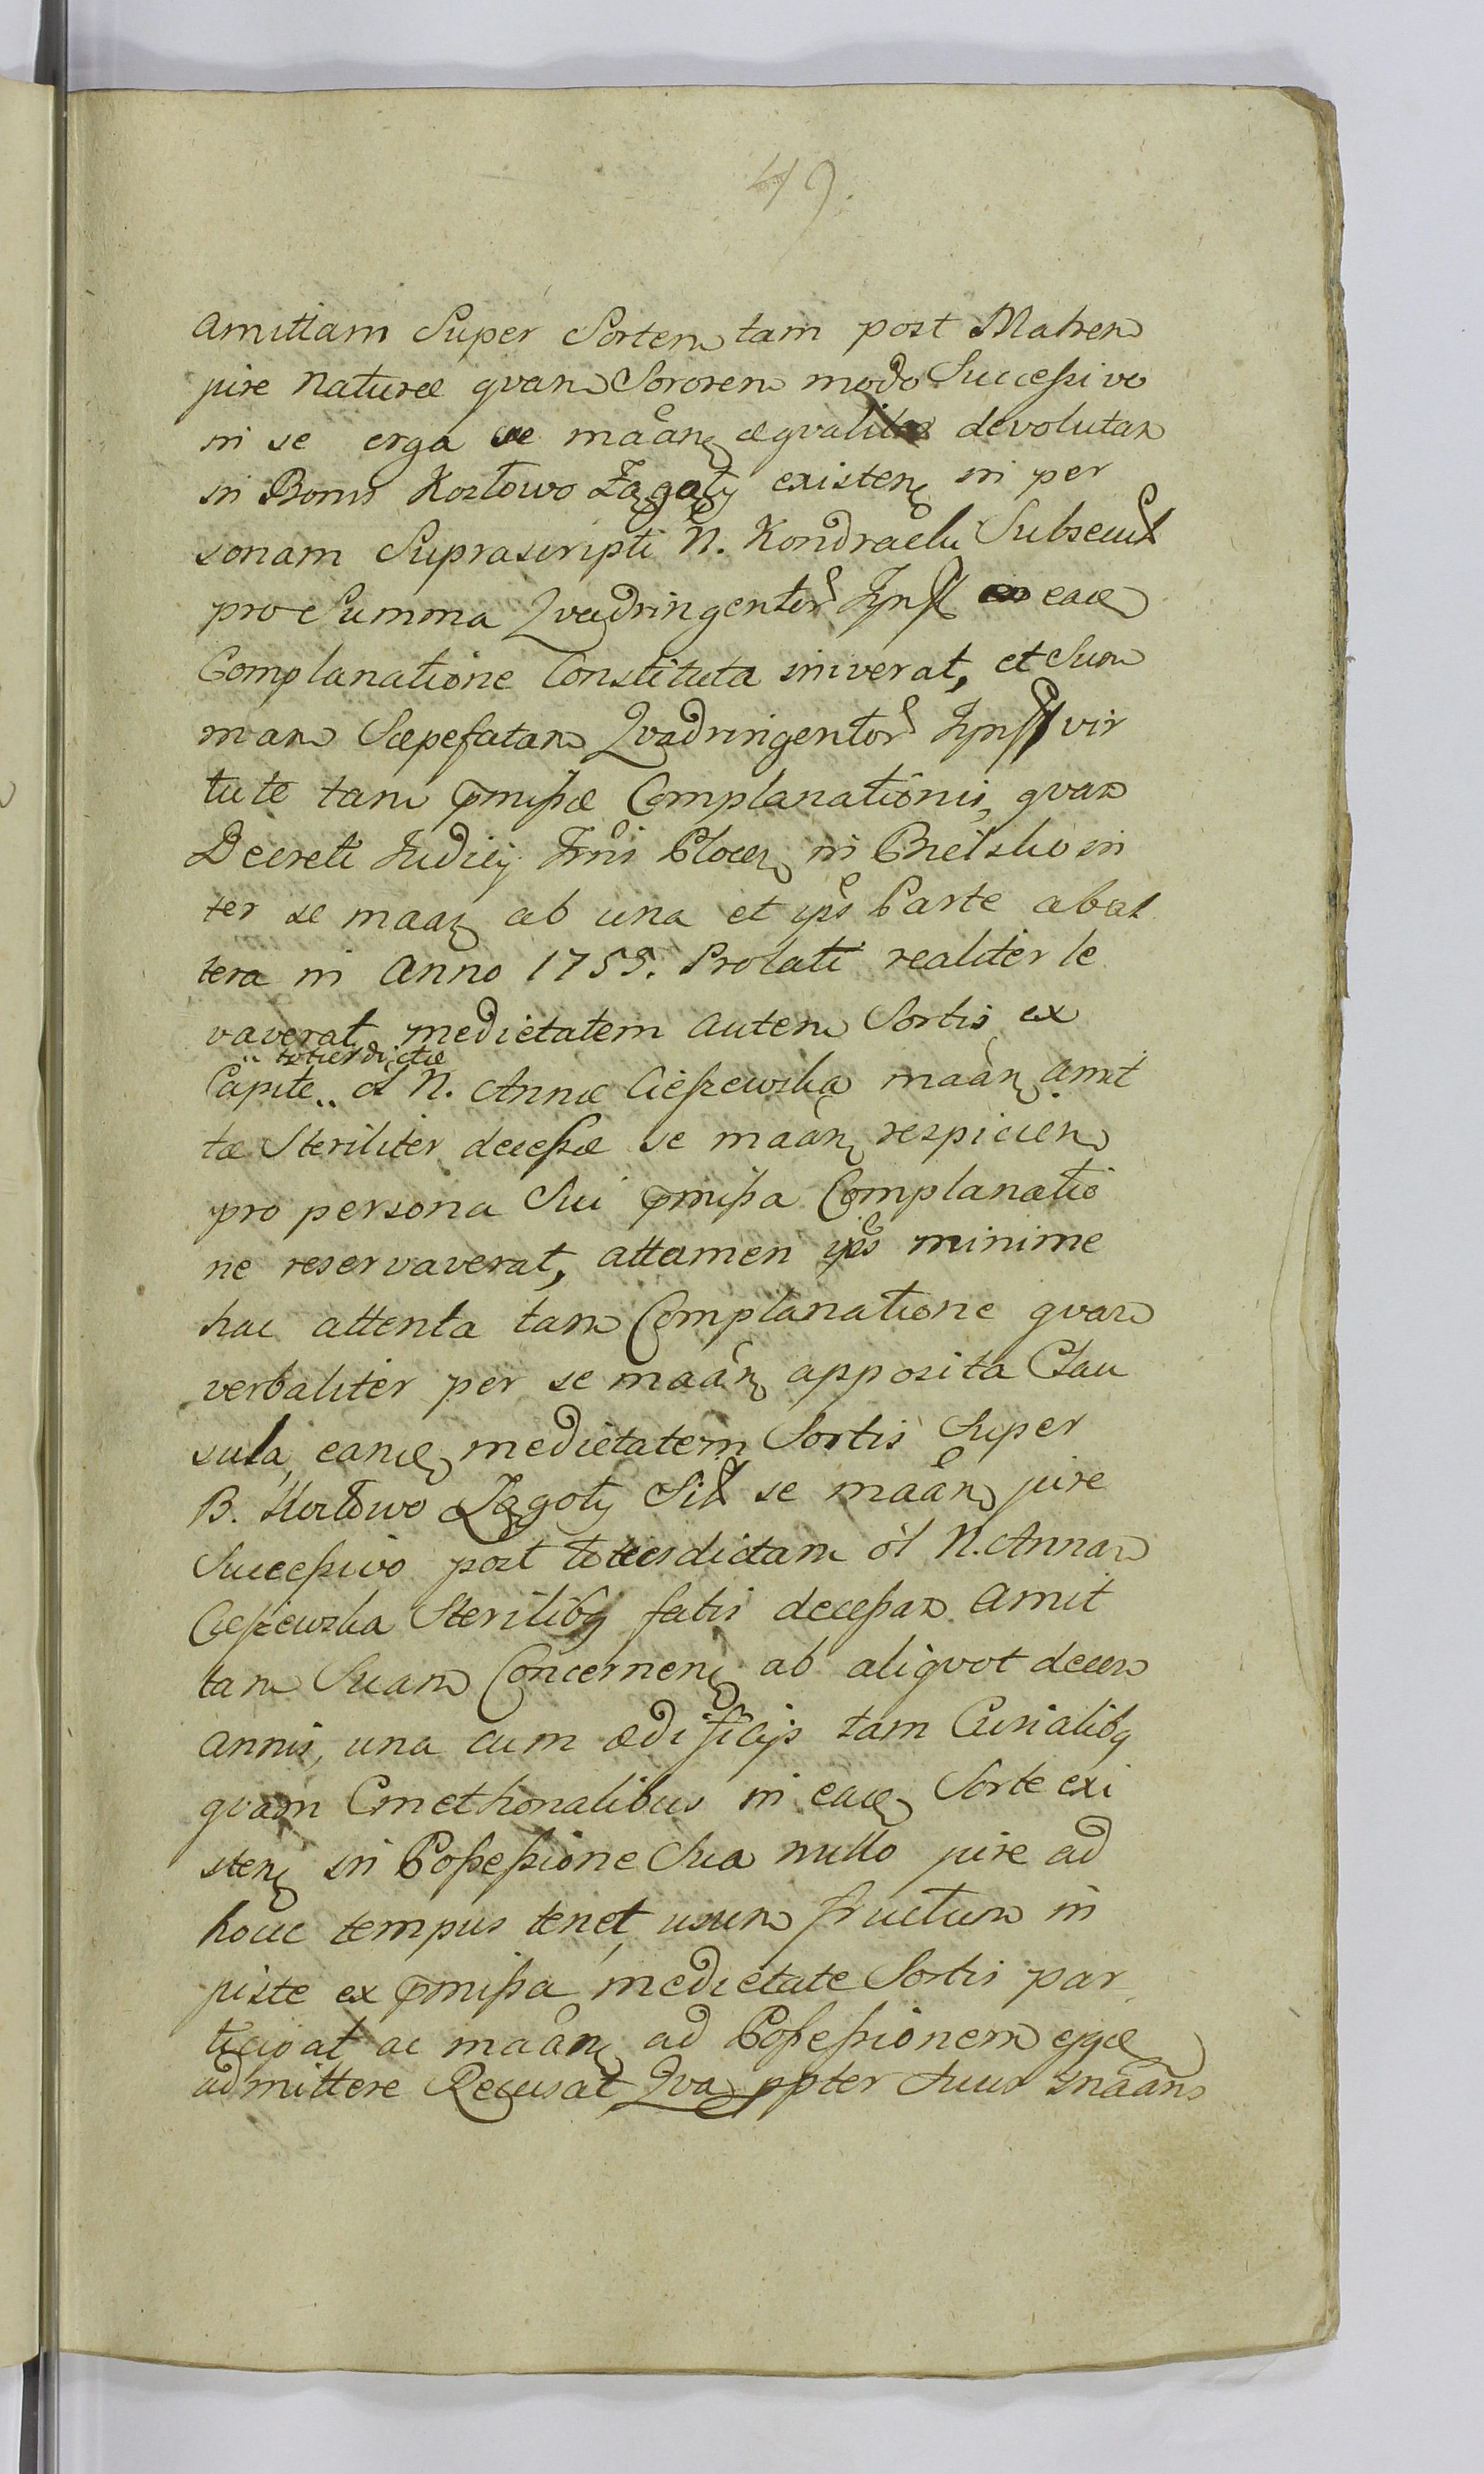 49.
amittam Super Sortem tam post Matrem
jure naturæ qvam Sororem modo Successivo
in se erga se maãm æqvaliter devolutam
in Bonis Kozłowo Zągoty existen in per
sonam Suprascripti N. Kondracki Subsecut
pro Summa Qvadringentor Fpnß in eade
Complanatione Constituta iniverat, et Sum
mam Sæpefatam Qvadringentor Fpnß vir
tute tam pmißæ Complanationis, qvam
Decreti Judicij Trris Plocen in Bielsko in
ter se maam ab una et ips Parte ab al
tera in Anno 1755. Prolati realiter le
vaverat medietatem autem Sortis ex
totiesdictæ
Capite .. ol N. Annæ Cießewska maãm Amit
tæ Steriliter deceßæ se maãm respicien
pro persona Sui pmißa Complanatio
ne reservaverat, attamen ips minime
hac attenta tam Complanatione qvam
verbaliter per se maãm apposita Clau
sula, eande medietatem Sortis Super
B. Kozłowo Zągoty Sil se maãm jure
Succeßivo post totiesdictam ol N. Annam
Cießewska Sterilibq fatis deceßam Amit
tam Suam Concernen ab aliqvot decem
annis, una cum ædificijs tam Curialibq
qvam Cmethonalibus in eade Sorte exi
sten in Poßeßione Sua nullo jure ad
hocce tempus tenet, usum fructum in
juste ex pmißa medietate Sortis par
ticipat ac maãm ad Poßeßionem ejqde
admittere Recusat Qva ppter Suus Inãans